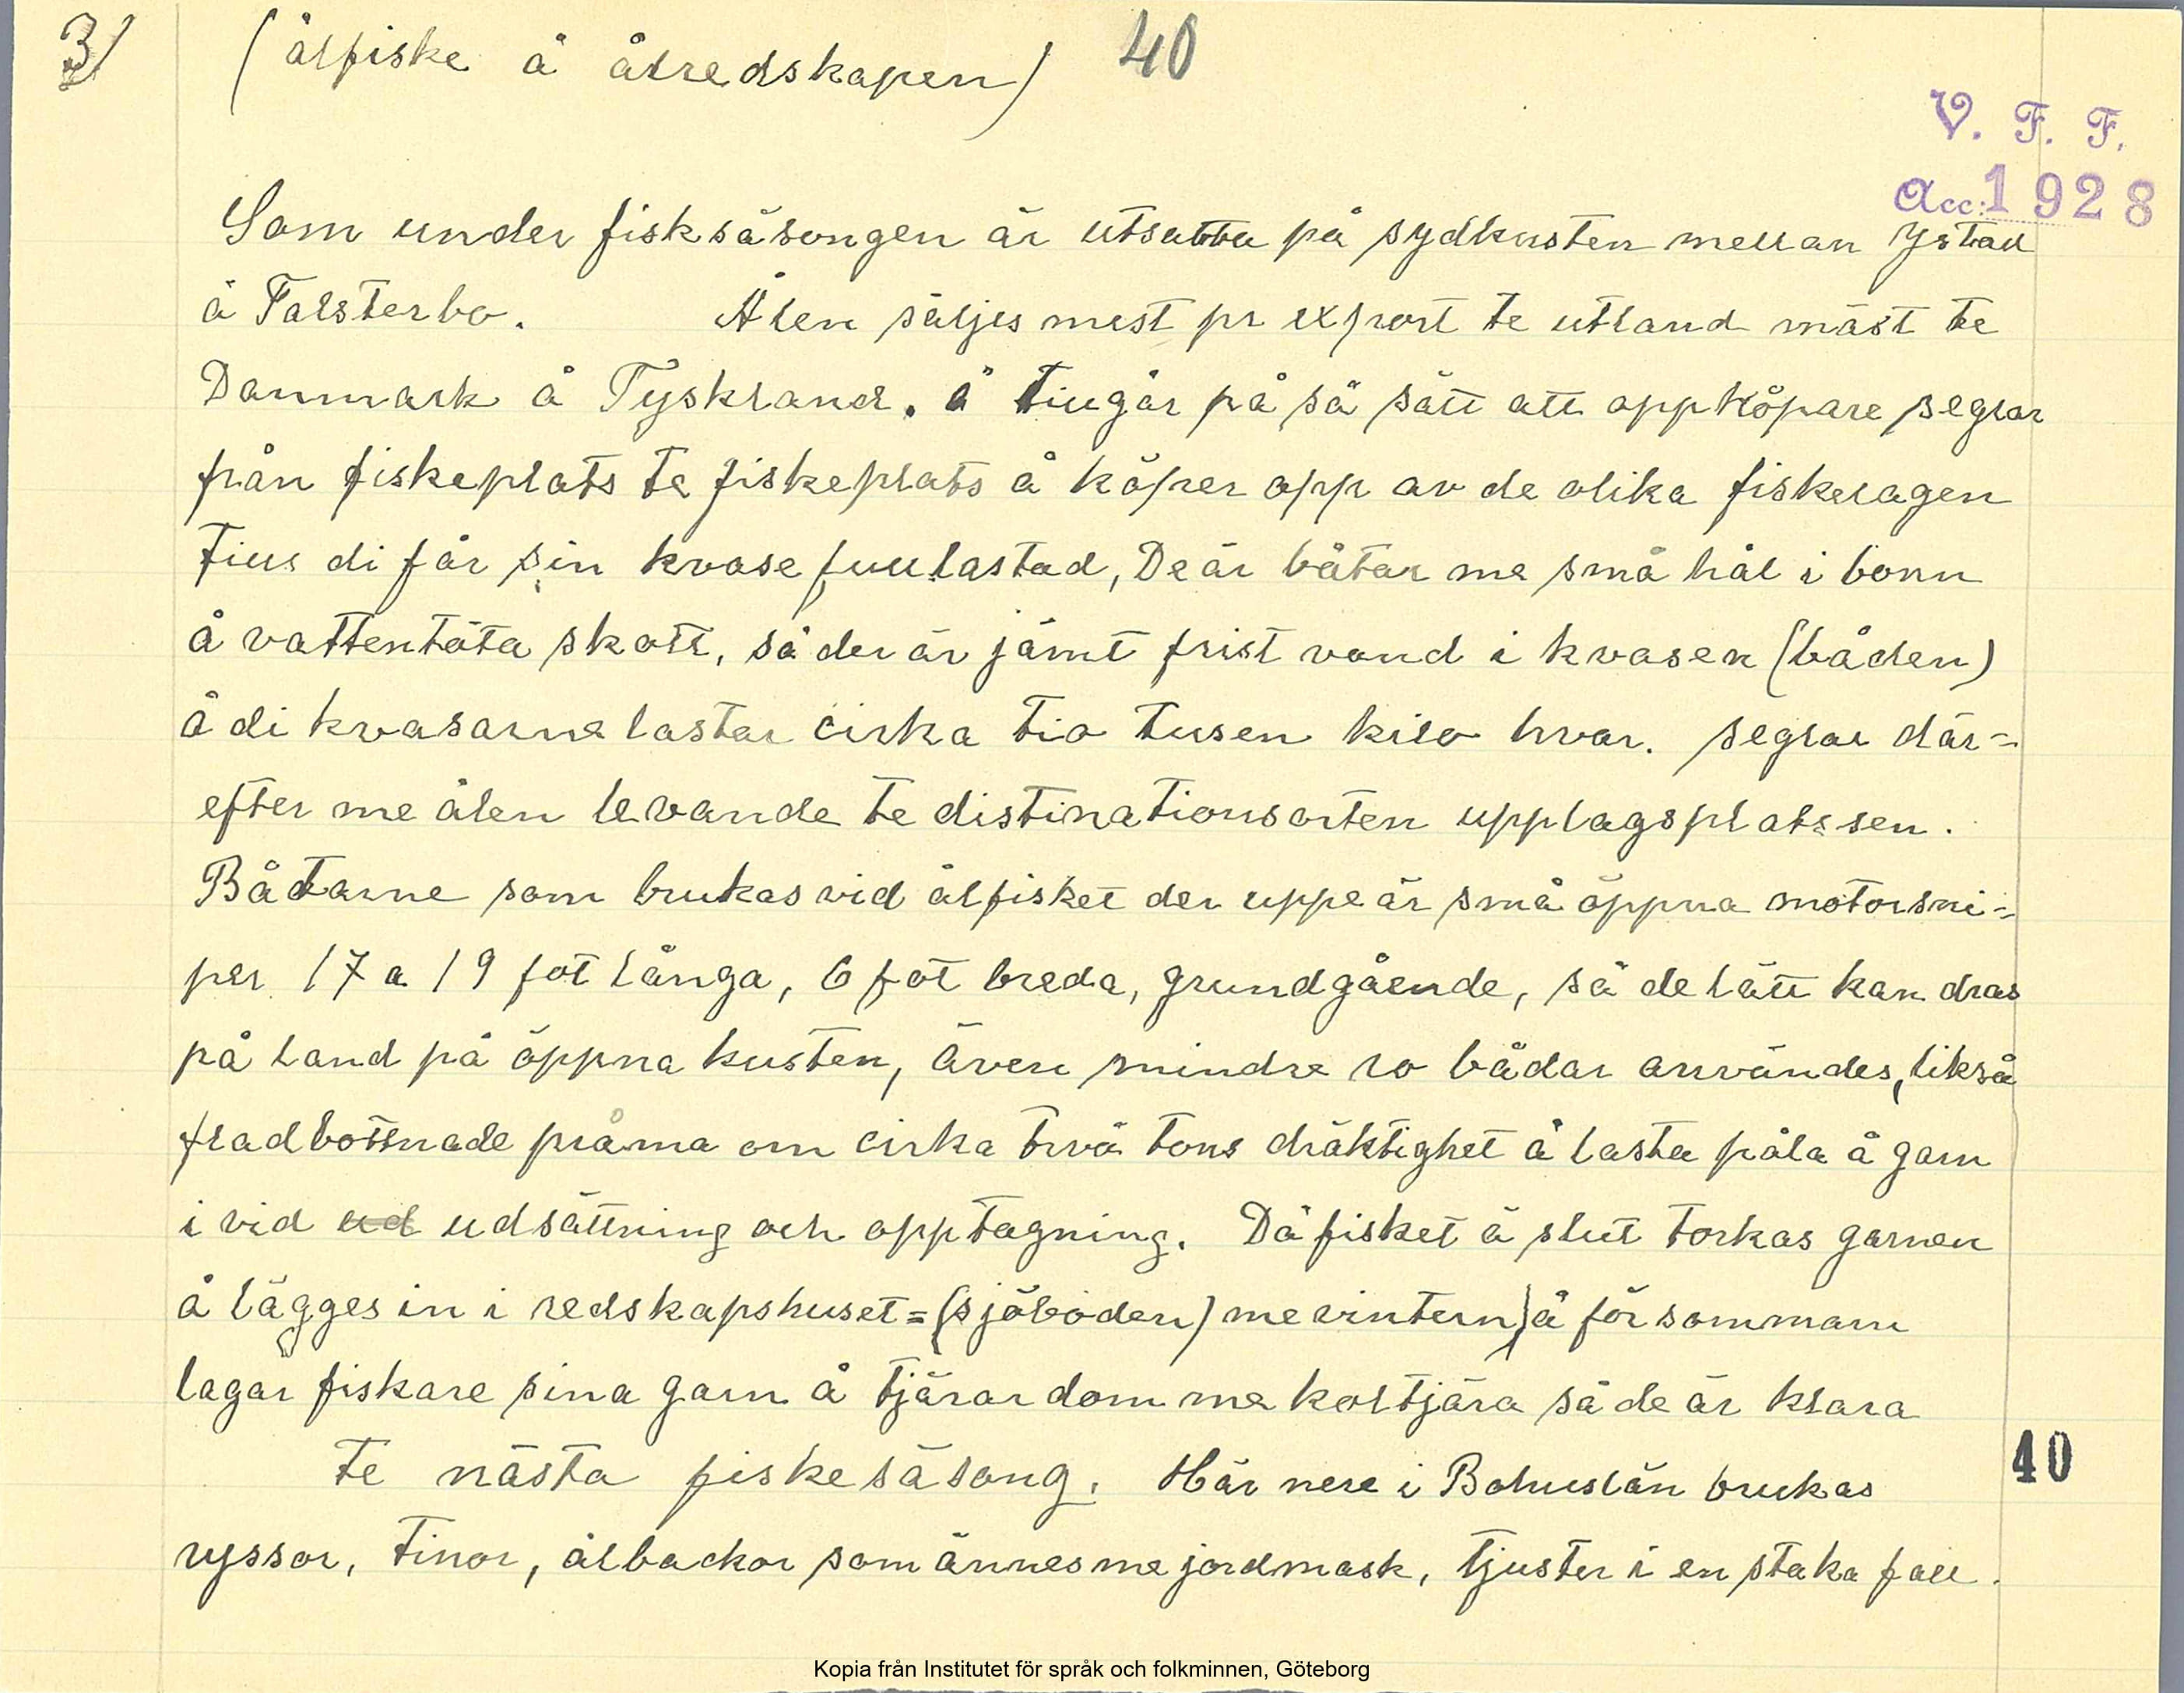 3/ (ålfiske å ålredskapen) 40
V. F. F.
Acc: 1928
Som under fisksäsongen är utsatta på sydkusten mellan Ystad
å Falsterbo. Ålen säljes mest pr export te utland mäst te
Danmark å Tyskland. å tillgår på så sätt att oppköpare seglar
från fiskeplats te fiskeplats å köper opp av de olika fiskelagen
tills di får sin kvase fullastad, De är båtar me små hål i bonn
å vattentäta skott, så der är jämt frist vand i kvasen (båden)
å di kvasarne lastar cirka tio tusen kilo hvar. seglar där=
efter me ålen levande te distinationsorten upplagsplatssen.
Båtarne som brukas vid ålfisket der uppe är små öppna motorsni=
per 17 a 19 fot långa, 6 fot breda, grundgående, så de lätt kan dras
på land på öppna kusten, även mindre ro bådar användes, likså
fladbottnade pråma om cirka två tons dräktighet å lasta påla å garn
i vid ud udsättning och opptagning. Då fisket ä slut torkas garnen
å lägges in i redskapshuset=(sjöboden) me vintern) å försommarn
lagar fiskare sina garn å tjärar dom me koltjära så de är klara
te nästa fiskesäsong. Här nere i Bohuslän brukas
40
ryssor, tinor, ålbackor som ännes me jordmask, tjuster i en staka fall.
Kopia från Institutet för språk och folkminnen, Göteborg